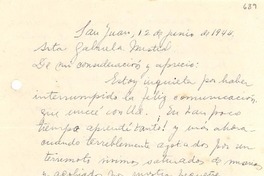 689
San Juan, 12 de junio de 1944.
Srta. Gabriela Mistral
De mi consideración y aprecio:
Estoy inquieta por haber
interrumpido la feliz comunicación,
que inicié con Ud. ¡En tan poco
tiempo aprendí tanto! y más ahora
cuando terriblemente azotados por un
terremoto nos saturados de
y agobiados por nuestra